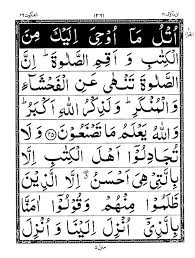 اُتْلُ مَاۤ اُوْحِیَ اِلَیْكَ مِنَ
الْكِتٰبِ وَ اَقِمِ الصَّلٰوةَ ؕ اِنَّ
الصَّلٰوةَ تَنْهٰی عَنِ الْفَحْشَآءِ
وَ الْمُنْكَرِ ؕ وَ لَذِكْرُ اللّٰهِ اَكْبَرُ ؕ
وَ اللّٰهُ یَعْلَمُ مَا تَصْنَعُوْنَ ﴿۴۵﴾ وَ لَا
تُجَادِلُوْۤا اَهْلَ الْكِتٰبِ اِلَّا
بِالَّتِیْ هِیَ اَحْسَنُ ۖ اِلَّا الَّذِیْنَ
ظَلَمُوْا مِنْهُمْ وَ قُوْلُوْۤا اٰمَنَّا
بِالَّذِیْۤ اُنْزِلَ اِلَیْنَا وَ اُنْزِلَ